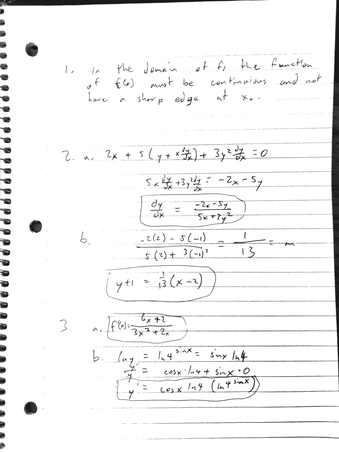 1. in the domain of f, the function
of f(x) must be continuious and not
have a sharp edge at x₀.
2. a. 2x + 5(y + x dy/dx) + 3y² dy/dx = 0
5x dy/dx + 3y² dy/dx = -2x - 5y
dy/dx = (-2x - 5y)/(5x + 3y²)
b. (-2(2) - 5(-1))/(5(2) + 3(-1)²) = 1/13 = m
y + 1 = 1/13 (x - 2)
3. a. f'(x) = (6x + 2)/(3x² + 2x)
b. ln y = ln 4^(sin x) = sin x ln 4
y'/y = cos x · ln 4 + sin x · 0
y' = cos x ln 4 (ln 4^(sin x))